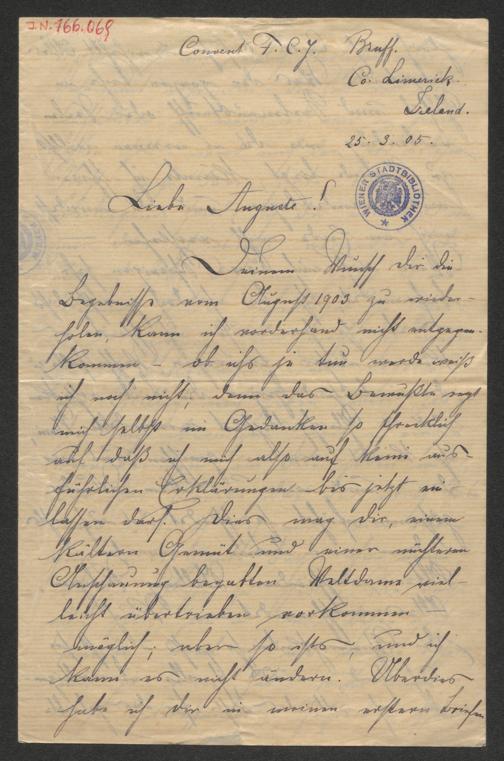 J.N. 166.069
Convent F. C. J. Bruff.
Co. Limerick.
Ireland.
25. 3. 05.
WIENER STADTBIBLIOTHEK
Liebe Auguste!
Deinem Wunsch dir die
Begebnisse vom August 1903 zu wieder-
holen, kann ich vorderhand nicht entgegen-
kommen – ob ichs je tun werde weiß
ich noch nicht, denn das Bewußte regt
mich selbst im Gedanken so schrecklich
auf daß ich mich also auf keine aus-
führlichen Erklärungen bis jetzt ein
lassen darf. Dies mag dir, einem
kältern Gemüt und einer nüchteren
Anschauung begabten Weltdame viel-
leicht übertrieben vorkommen
möglich; aber so ists, und ich
kann es nicht ändern. Überdies
habe ich dir in meinen erstern Briefen